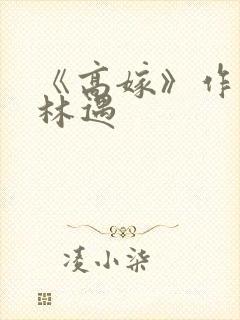 《高嫁》作
林遇
凌小柒